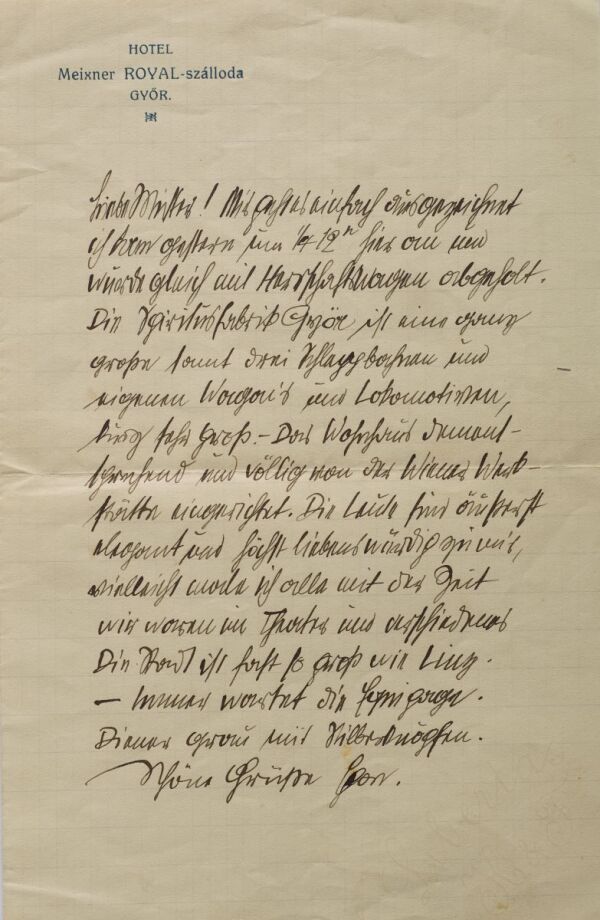 HOTEL
Meixner ROYAL-szálloda
GYŐR.
Liebe Mutter! Mir geht es einfach ausgezeichnet
ich kam gestern um 1/4 12h hier an und
wurde gleich mit Herrschaftswagen abgeholt.
Die Spiritusfabrik Györ ist eine ganz
große samt drei Schleppbahnen und
eigenen Wagon's und Lokomotiven,
kurz sehr groß. – Das Wohnhaus dement-
sprechend und völlig von der Wiener Werk-
stätte eingerichtet. Die Leute sind äußerst
elegant und höchst liebenswürdig zu mir,
vielleicht male ich alle mit der Zeit
wir waren im Theater und verschiedenes
Die Stadt ist fast so groß wie Linz.
– Immer wartet die Equipage.
Diener grau mit Silberknöpfen.
Schöne Grüße Egon.